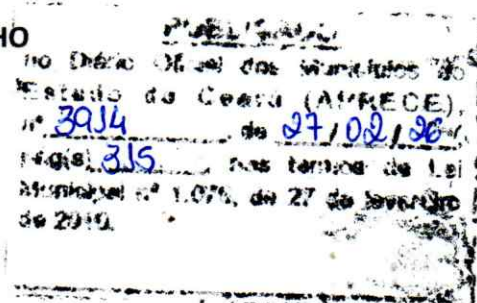 HO
PUBLICADO
no Diário Oficial dos Municípios do
Estado do Ceará (APRECE),
nº 3914 de 27/02/26
pág(s) 315 nos termos da Lei
Municipal nº 1.075, de 27 de fevereiro
de 2019.